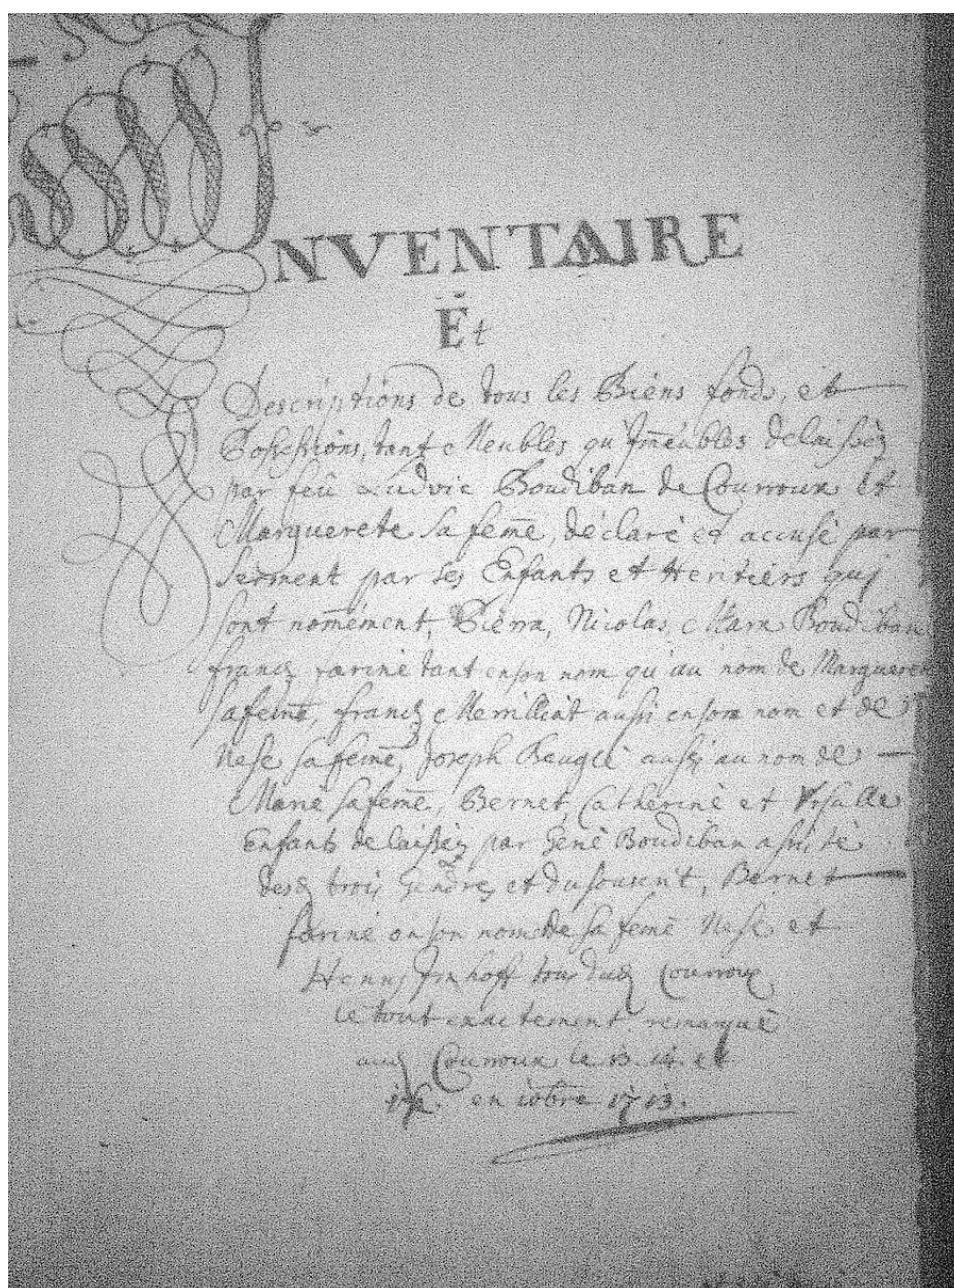 INVENTAIRE
Et
Descriptions de tous les Biens fonds, et
Possessions, tant Meubles qu'Im̄eubles delaissez
par feû Ludvic Boudiban de Courroux et
Marguerete sa fem̄e, déclaré et accusé par
serment par ses Enfants et Heritiers quj
sont nom̄ément, Pierra, Nicolas, Marx Boudiban
franç farine tant en son nom qu'au nom de Marguerete
sa fem̄e, franç Merillint aussi en son nom et de
Nese sa fem̄e, Joseph aussj au nom de
Marie sa fem̄e, Bernet, Catherine et Ursulle
Enfants delaissez par Boudiban assité
desd trois Gendres et du Bernet
farine en son nom de sa feme Nese et
Henry Imhoff tous dud Courroux
le tout exactement remarqué
aud Courroux le 13. 14. et
en 1713.